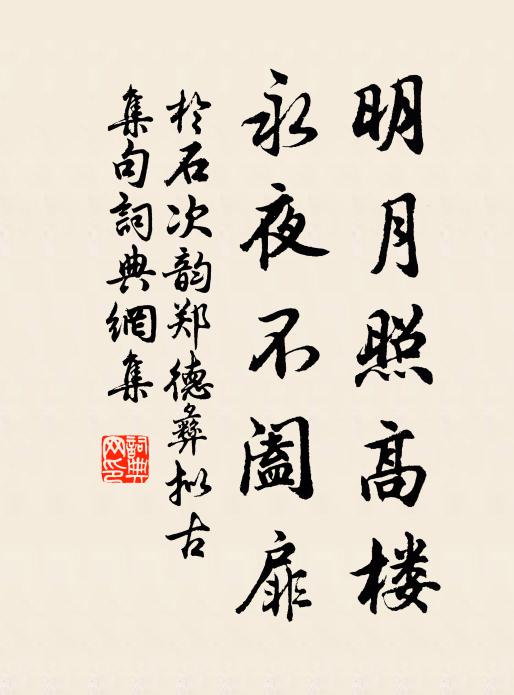 明月照高楼
永夜不阖扉
於石次韵郑德彝拟古
集句詞典網集
詞典网印